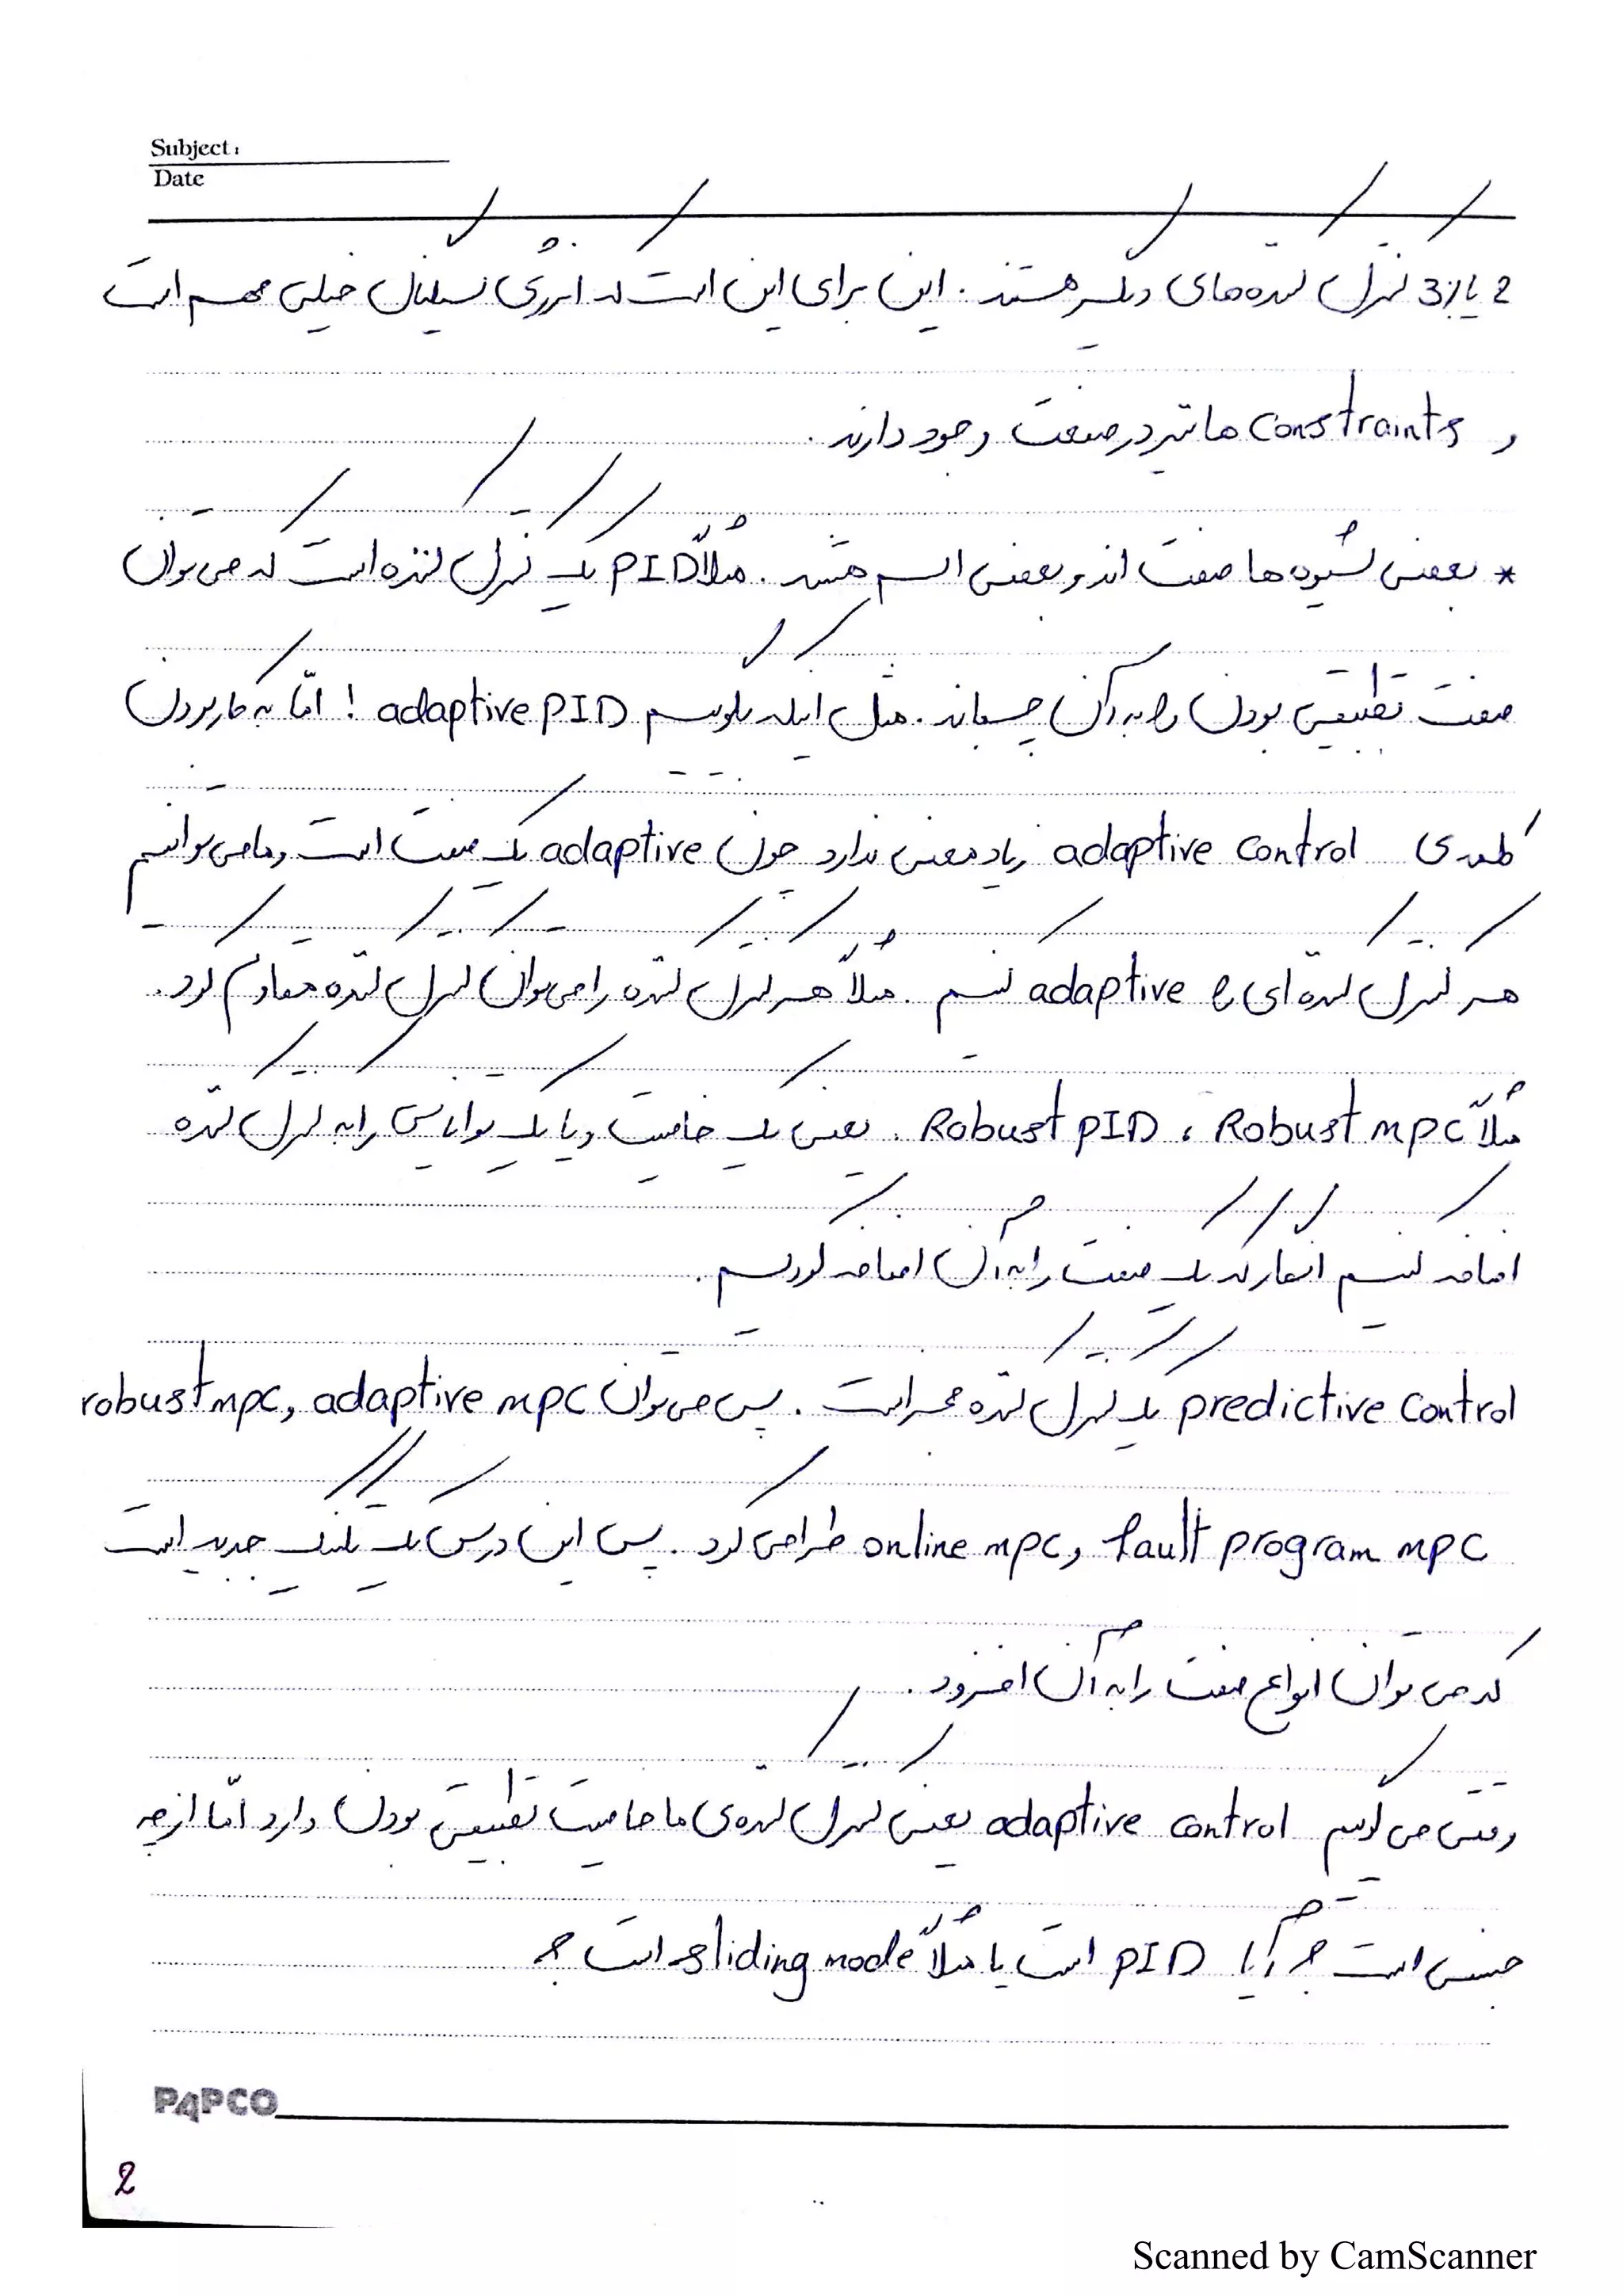 Subject:
Date
2 یا 3٪ کنترل کننده‌های دیگر هستند. این برای این است که انرژی سیگنال خیلی مهم است
و constraints ها نیز در صنعت وجود دارند.
* بعضی شیوه‌ها صفت اند و بعضی اسم هستند. مثلاً PID یک کنترل کننده است که می‌توان
صفت تطبیقی بودن را به آن چسباند. مثل اینکه بگوییم adaptive PID ! امّا به کار بردن
کلمه‌ی adaptive control زیاد معنی ندارد چون adaptive یک صفت است و ما می‌توانیم
هر کنترل کننده‌ای را adaptive کنیم. مثلاً هر کنترل کننده را می‌توان کنترل کننده مقاوم کرد.
مثلاً Robust MPC ، Robust PID . یعنی یک خاصیت و یا یک توانایی را به کنترل کننده
اضافه کنیم انگار که یک صفت را به آن اضافه کردیم.
predictive control یک کنترل کننده است. پس می‌توان robust mpc, adaptive mpc
online mpc, fault program mpc طراحی کرد. پس این درس یک تکنیک جدید است
که می‌توان انواع صفت را به آن افزود.
وقتی می‌گوییم adaptive control یعنی کنترل کننده‌ی ما خاصیت تطبیقی بودن دارد امّا از چه
جنسی است؟ آیا PID است یا مثلاً sliding mode است؟
PAPCO
2
Scanned by CamScanner